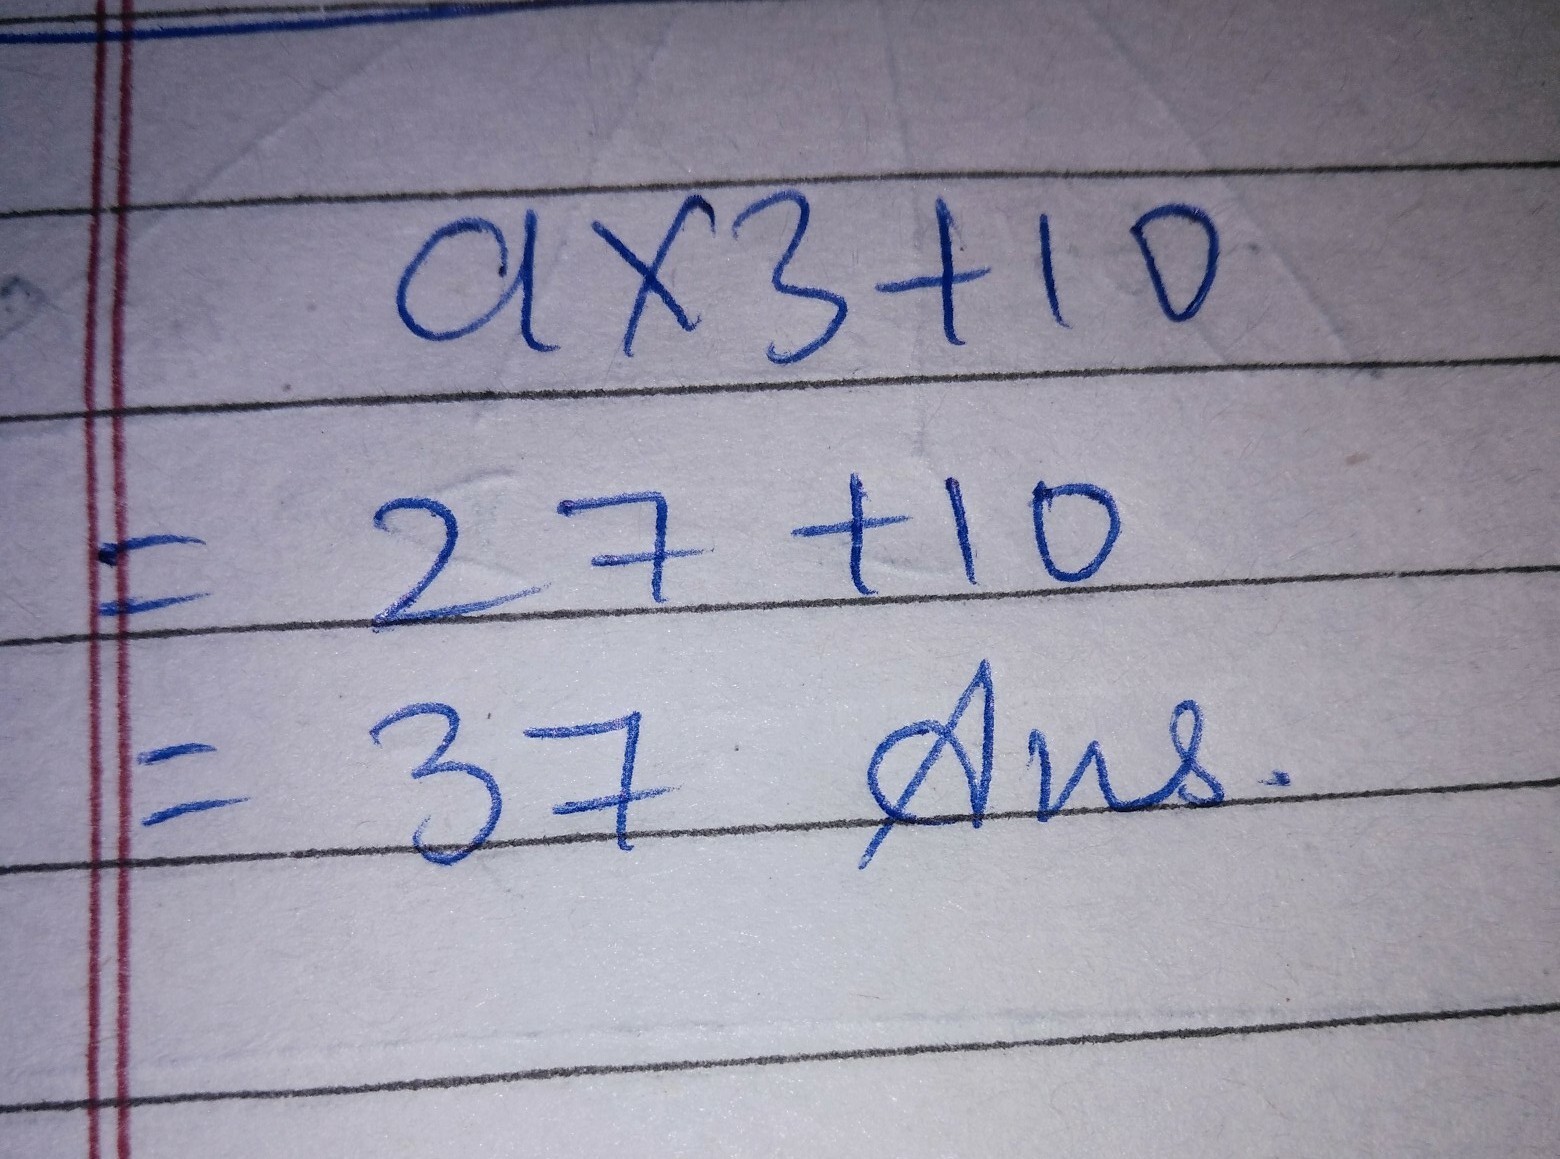 9×3+10
= 27+10
= 37 Ans.